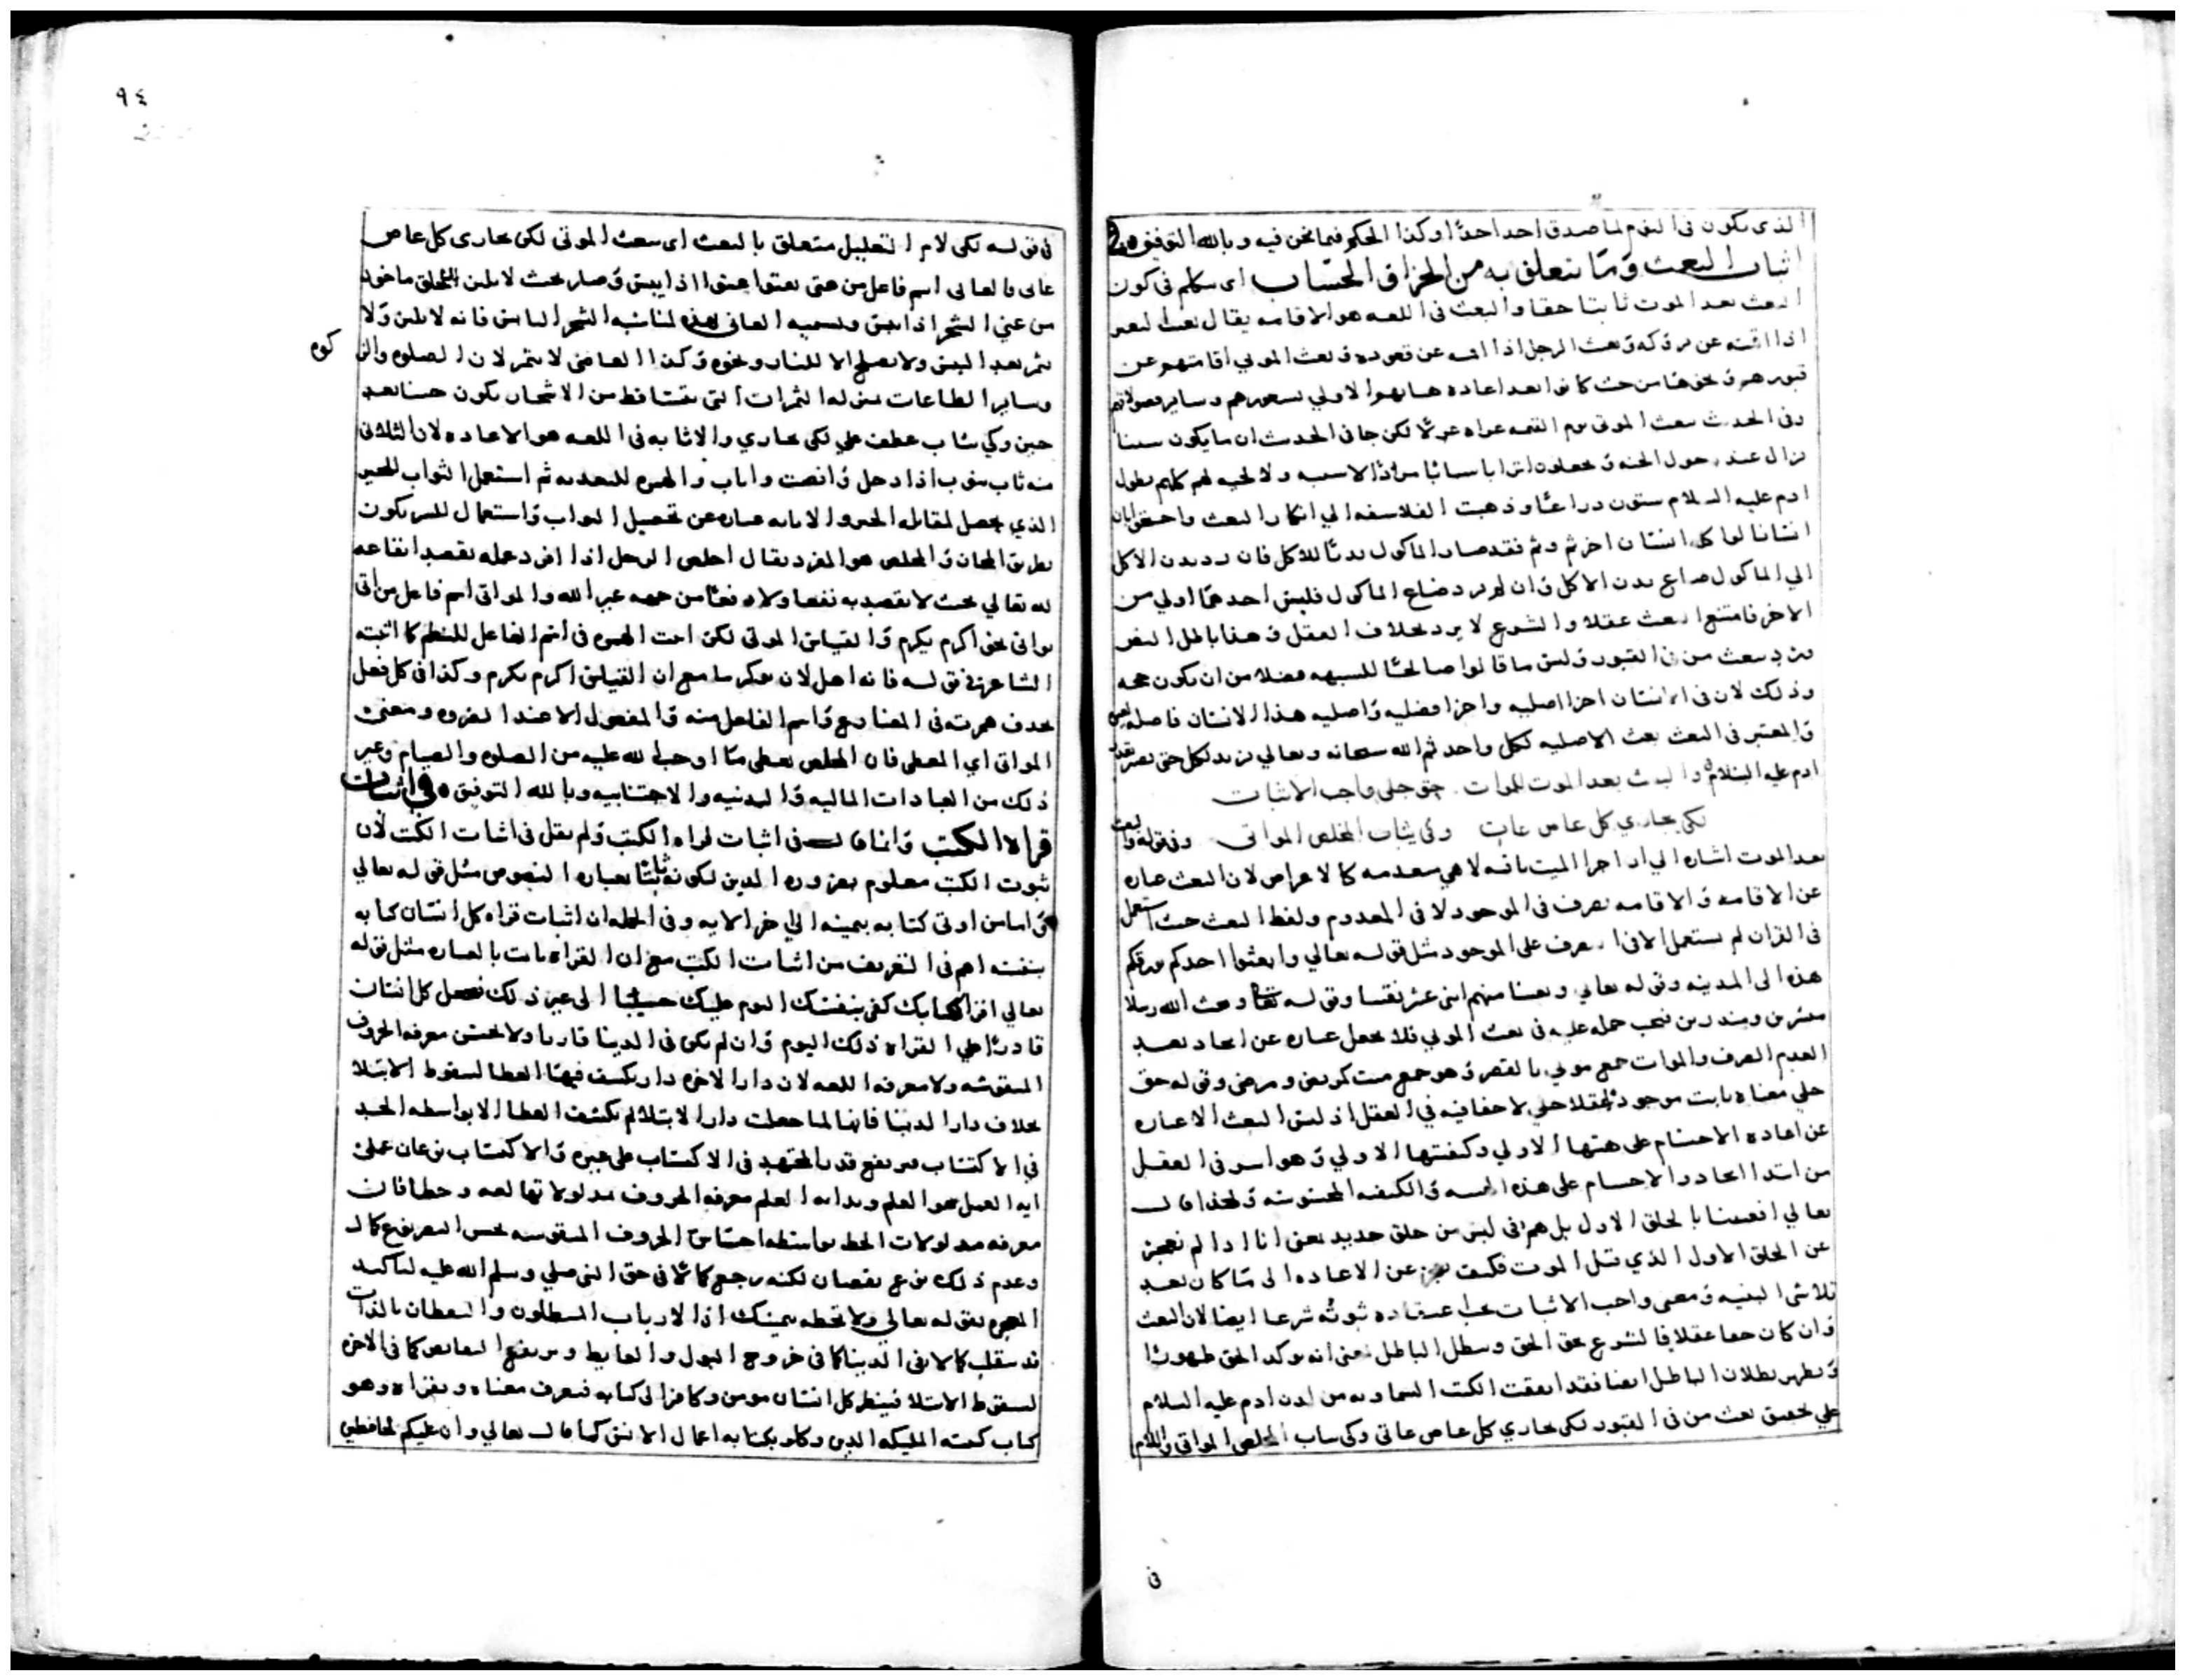 الذى يكون فى النوم لما صدق احد احدا وكذا الحكم فيما نحن فيه وبالله التوفيق فى
اثبات البعث وما يتعلق به من الجزا و الحساب اى سكلم فى كون
البعث بعد الموت ثابتا حقا والبعث فى اللغه هو الاقامه يقال بعث البعير
اذا اقمته عن بروكه وبعث الرجل اذا اقمته عن قعوده وبعث الموتي اقامتهم عن
قبورهم ونحوها من حيث كانوا بعد اعادة هياتهم الاولي بشعورهم وساير
وفى الحديث يبعث الموتى يوم القيمه عراه غرلا لكن جا فى الحديث ان ما يكون
ادم عليه السلام ستون دراعا وذهبت الفلاسفه الي انكار البعث واحتجوا بان
انسانا لو اكل انسان اخر ثم وثم فقد صار الماكول بدنا للاكل فان رد بدن الاكل
الي الماكول ضاع بدن الاكل وان لم يرد ضاع الماكول فليس احدهما اولي من
الاخر فامتنع البعث عقلا والشرع لا يرد بخلاف العقل وهذا باطل
يبعث من فى القبور وليس ما قالوا صالحا للشبهه فضلا من ان يكون حجه
وذلك لان فى الانسان اجزا اصليه واجزا فضليه واصليه هذا الانسان فاصله
والمعتبر فى البعث بعث الاصليه لكل واحد ثم الله سبحانه وتعالي يزيد لكل حتى يصير
ادم عليه السلام والبعث بعد الموت للموات حق جلي واجب الاثبات
لكى يجازي كل عاص عات وكى يثاب المخلص المواتى وفى قوله والبعث
بعد الموت اشاره الي ان اجزا الميت باقيه لا هي منعدمه كالاعراض لان البعث عباره
عن الاقامه والاقامه تعرف فى الموجود لا فى المعدوم ولفظ البعث حيث استعمل
فى القران لم يستعمل الا فى على الموجود مثل قوله تعالي وابعثوا احدكم بورقكم
هذه الى المدينه وقوله تعالي وبعثنا منهم اثنى عشر نقيبا وقوله تعا وبعث الله رسلا
مبشرين ومنذرين فيجب حمله عليه فى بعث الموتي فلا يجعل عباره عن ايجاد بعد
العدم الصرف والموات جمع موتي بالقصر وهو جمع ميت كمريض ومرضى وقوله حق
جلي معناه ثابت موجود عقلا جلي لا خفا فيه في العقل اذ ليس البعث الا عباره
عن اعادة الاجسام على هيتها الاولي وكيفيتها الاولي وهو ايسر فى العقل
من ابتدا ايجاد الاجسام على هذه الهيه والكيفيه المحسوسه ولهذا قال
تعالي افعيينا بالخلق الاول بل هم فى لبس من خلق جديد يعنى انا اذا لم نعجز
عن الخلق الاول الذي قبل الموت فكيف نعجز عن الاعاده الى ما كان بعد
تلاشى البنيه ومعنى واجب الاثبات يجب اعتقاده ثبوته شرعا ايضا لان البعث
وان كان حقا عقلا فالشرع يحق الحق ويبطل الباطل يعنى انه يوكد الحق ظهورا
ويظهر بطلان الباطل ايضا فقد اتفقت الكتب السماويه من لدن ادم عليه السلام
علي تحقيق بعث من فى القبور لكى يجازي كل عاص عاتى وكى يثاب المخلص المواتى واللام
فى
٩٤
فى قوله لكى لام التعليل متعلق بالبعث اى يبعث الموتى لكى يجازى كل عاص
عاتى فالعاتى اسم فاعل من عتى يعتوا عتوا اذا يبس وصار بحيث لا يلين التخلق ماخوذ
من عتي الشجر اذا يبس وتسميه العاتى لهذه المناسبه الشجر اليابس فانه لا يلين ولا
يثمر بعد اليبس ولا يصلح الا للنار ونحوه وكذا العاصى لا يثمر لان الصلوه والز
كوه
وساير الطاعات بمنزله الثمرات التى تتساقط من الاشجار يكون حسنا بعد
حين وكي يثاب عطف علي لكى يجازي والاثابه فى اللغه هو الاعاده لان الثلاثى
منه ثاب يثوب اذا دخل وانصب واثاب والهمزه للتعديه ثم استعمل الثواب للخير
الذي يحصل لمقابله الخير والاثابه عباره عن تحصيل الثواب واستعمال للشر يكون
بطريق المجاز والمخلص هو المفرد يقال اخلص الرجل اذا افرد عمله بقصد ايقاعه
لله تعالي بحيث لا يقصد به نفعا ولا دفعا من جهه غير الله والمواتى اسم فاعل من اتى
يواتى نحو اكرم يكرم والقياس الموتى لكن اثبت الهمزه فى اسم الفاعل للنظم كما اثبته
الشاعر فى قوله فانه اهل لان يؤكرما مع ان القياس اكرم يكرم وكذا فى كل فعل
يحذف همزته فى المضارع واسم الفاعل منه والمفعول الا عند الضروره ومعنى
المواتى اي المعطى فان المخلص يعطى ما اوجب الله عليه من الصلوه والصيام وغير
ذلك من العبادات الماليه والبدنيه والاجتنابيه وبالله التوفيق فى اثبات
قراه الكتب وانما قال فى اثبات قراه الكتب ولم يقل فى اثبات الكتب لان
ثبوت الكتب معلوم بضروره الدين لكونه ثابتا بعباره النصوص مثل قوله تعالي
واما من اوتى كتابه بيمينه الي اخر الايه وفى الجمله ان اثبات قراه كل انسان كتابه
بنفسه اهم فى التعريف من اثبات الكتب مع ان القراه ثابت بالعباره مثل قوله
تعالي اقرا كتابك كفى بنفسك اليوم عليك حسيبا الى غير ذلك فيجعل كل انسان
قادرا علي القراه ذلك اليوم وان لم يكن فى الدينا قاريا ولا يحسن معرفه الحروف
المنقوشه ولا معرفه اللغه لان دار الاخره دار يكشف فيها الغطا لسقوط الابتلا
بخلاف دار الدنيا فانها لما جعلت دار الابتلا لم يكشف الغطا الا بواسطه الجد
فى الاكتساب فيرتفع قدر المجتهد فى الاكتساب على غيره والاكتساب نوعان عملى
ايه العمل هو العلم وبدايه العلم معرفه الحروف بمدلولاتها لغه وخطا فان
معرفه مدلولات الخط بواسطه احساس الحروف المنقوشه بحس البصر نوع كمال
وعدم ذلك نوع نقصان لكنه رجع كمالا فى حق النبى صلي وسلم الله عليه لتاكيد
المعجزه بقوله تعالي ولا تخطه بيمينك اذا لارتاب المبطلون والنقصان بالذات
قد ينقلب كمالا فى الدينا كما فى خروج البول والغايط ويرتفع النقايص كما فى الاخره
لسقوط الابتلا فينظر كل انسان مومن وكافر الى كتابه فيعرف معناه ويقراه وهو
كتاب كتبته المليكه الذين وكلو بكتابه اعمال الانس كما قال تعالي وان عليكم لحافظين